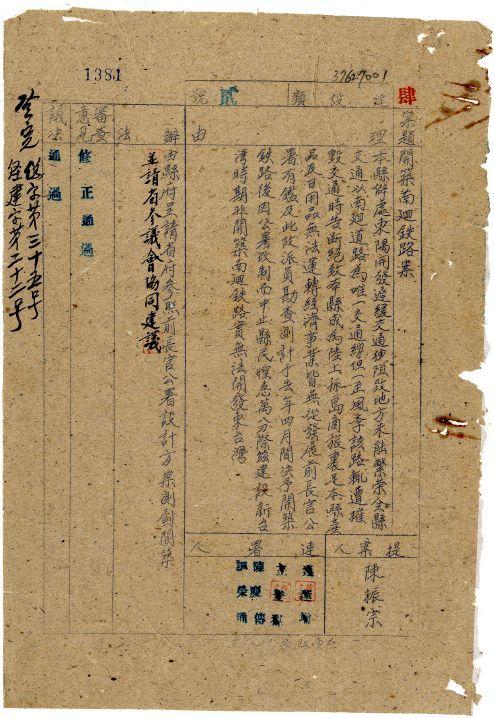 1381
37627001
肆
建設類
貳號
案題 開築南迴鐵路案
理由
本縣僻處東隅開發遲緩交通梗阻致地方未能繁榮全縣
交通以南迴道路為唯一交通線但一至風季該路輒遭摧
毀交通時告斷絕致本縣成為陸上孤島商旅裹足本縣產
品及日用品無法運轉經濟事業皆無從發展前長官公
署有鑑及此故派員勘查測計于去年四月間決予開築
鐵路後因公署改制而中止縣民惶急萬分際茲建設新台
灣時期非開築南迴鐵路實無法開發東台灣
辦法
由縣府呈請省府參照前長官公署設計方案測劃開築
並請省參議會協同建議
審查意見
修正通過
議決
通過
提案人
陳振宗
連署人
陳慶傳
榮通